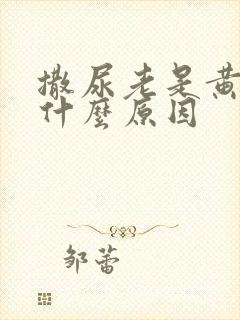 撒尿老是黄
什麼原因
邹蕾